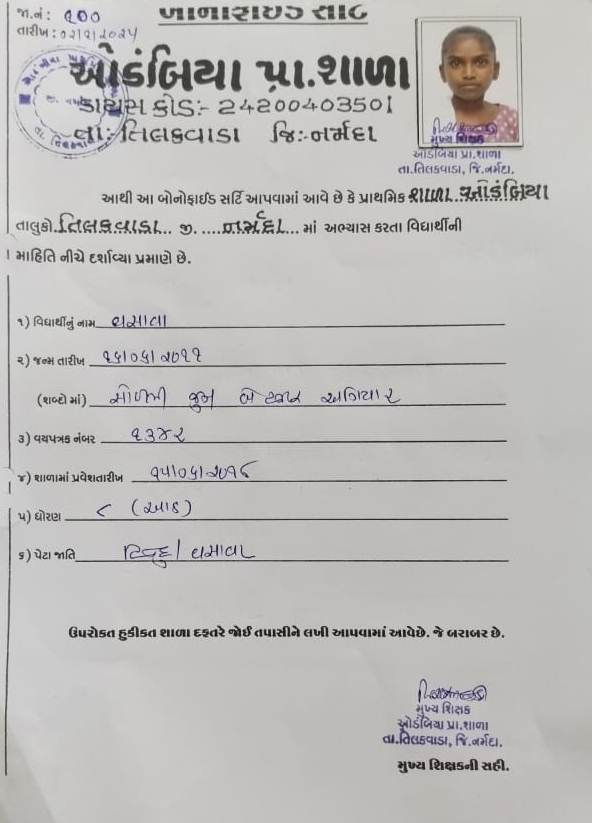 જા.નં: ૨૦૦ બોનાફાઇડ સર્ટિ
તારીખ: ૦૨/૨/૨૦૨૫
ઓડંબિયા પ્રા.શાળા
ડાયસ કોડ:- 24200403501
તા:-તિલકવાડા જિ:-નર્મદા
મુખ્ય શિક્ષક
ઓડંબિયા પ્રા.શાળા
તા.તિલકવાડા, જિ.નર્મદા.
આથી આ બોનોફાઈડ સર્ટિ આપવામાં આવે છે કે પ્રાથમિક શાળા ..ઓડંબિયા
તાલુકો.તિલકવાડા... જી. ....નર્મદા... માં અભ્યાસ કરતા વિદ્યાર્થીની
માહિતિ નીચે દર્શાવ્યા પ્રમાણે છે.
૧) વિદ્યાર્થીનું નામ
૨) જન્મ તારીખ ૧૬/૦૬/૨૦૧૧
(શબ્દો માં) સોળમી જુન બે હજાર અગિયાર
૩) વયપત્રક નંબર ૧૩૪૨
૪) શાળામાં પ્રવેશતારીખ
૫) ધોરણ ૮ (આઠ)
૬) પેટા જાતિ હિન્દુ/
ઉપરોકત હકીકત શાળા દફતરે જોઈ તપાસીને લખી આપવામાં આવેછે. જે બરાબર છે.
મુખ્ય શિક્ષક
ઓડંબિયા પ્રા.શાળા
તા.તિલકવાડા, જિ.નર્મદા.
મુખ્ય શિક્ષકની સહી.